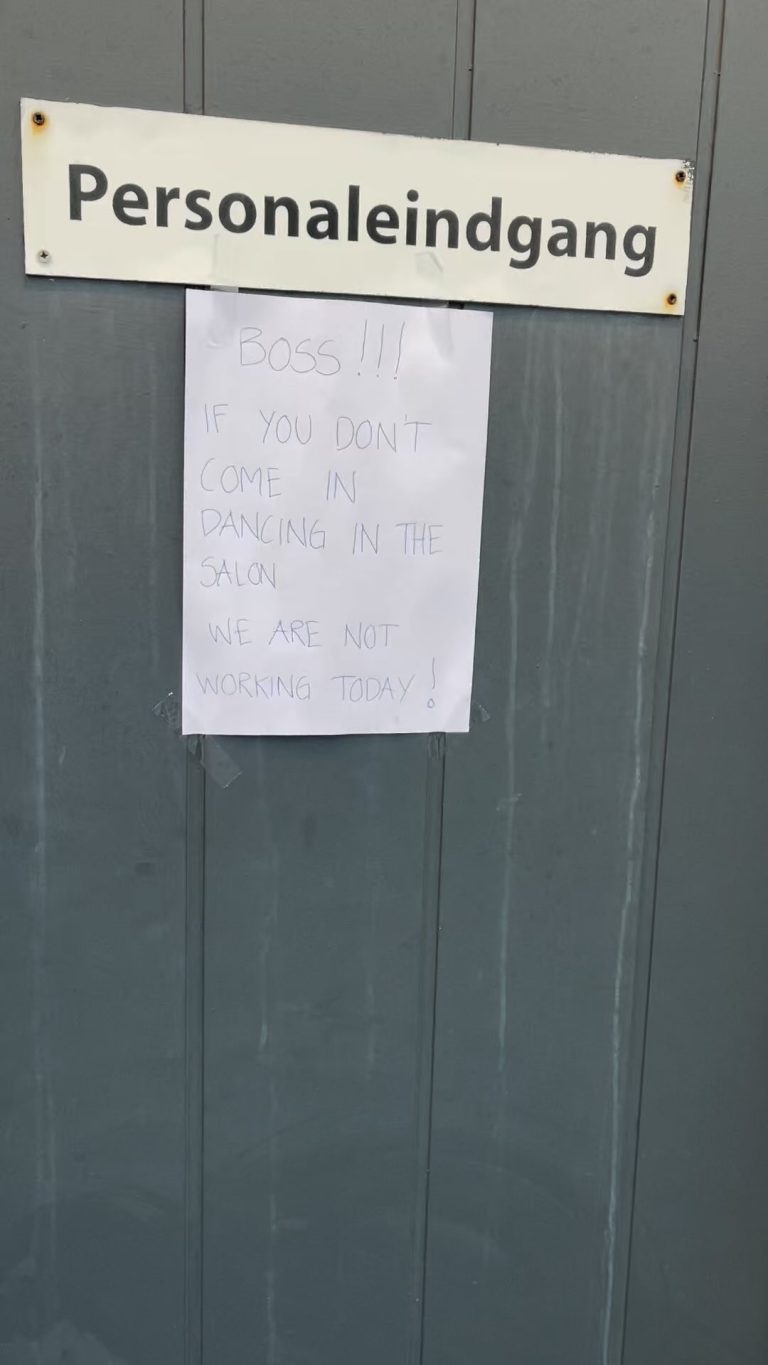 Personaleindgang
BOSS!!!
IF YOU DON'T
COME IN
DANCING IN THE
SALON
WE ARE NOT
WORKING TODAY!